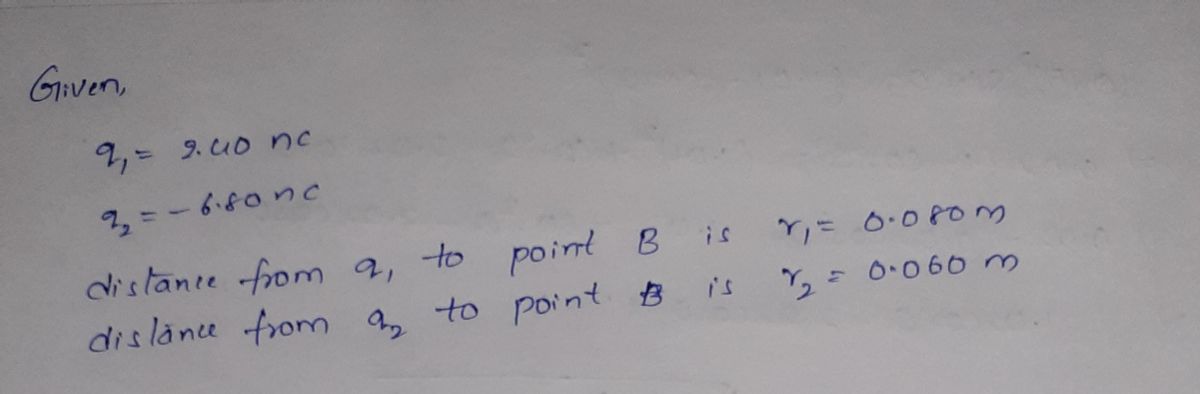 Given,
q₁ = 2.40 nc
q₂ = - 6.80 nc
distance from q₁ to point B is r₁ = 0.080 m
distance from q₂ to point B is r₂ = 0.060 m